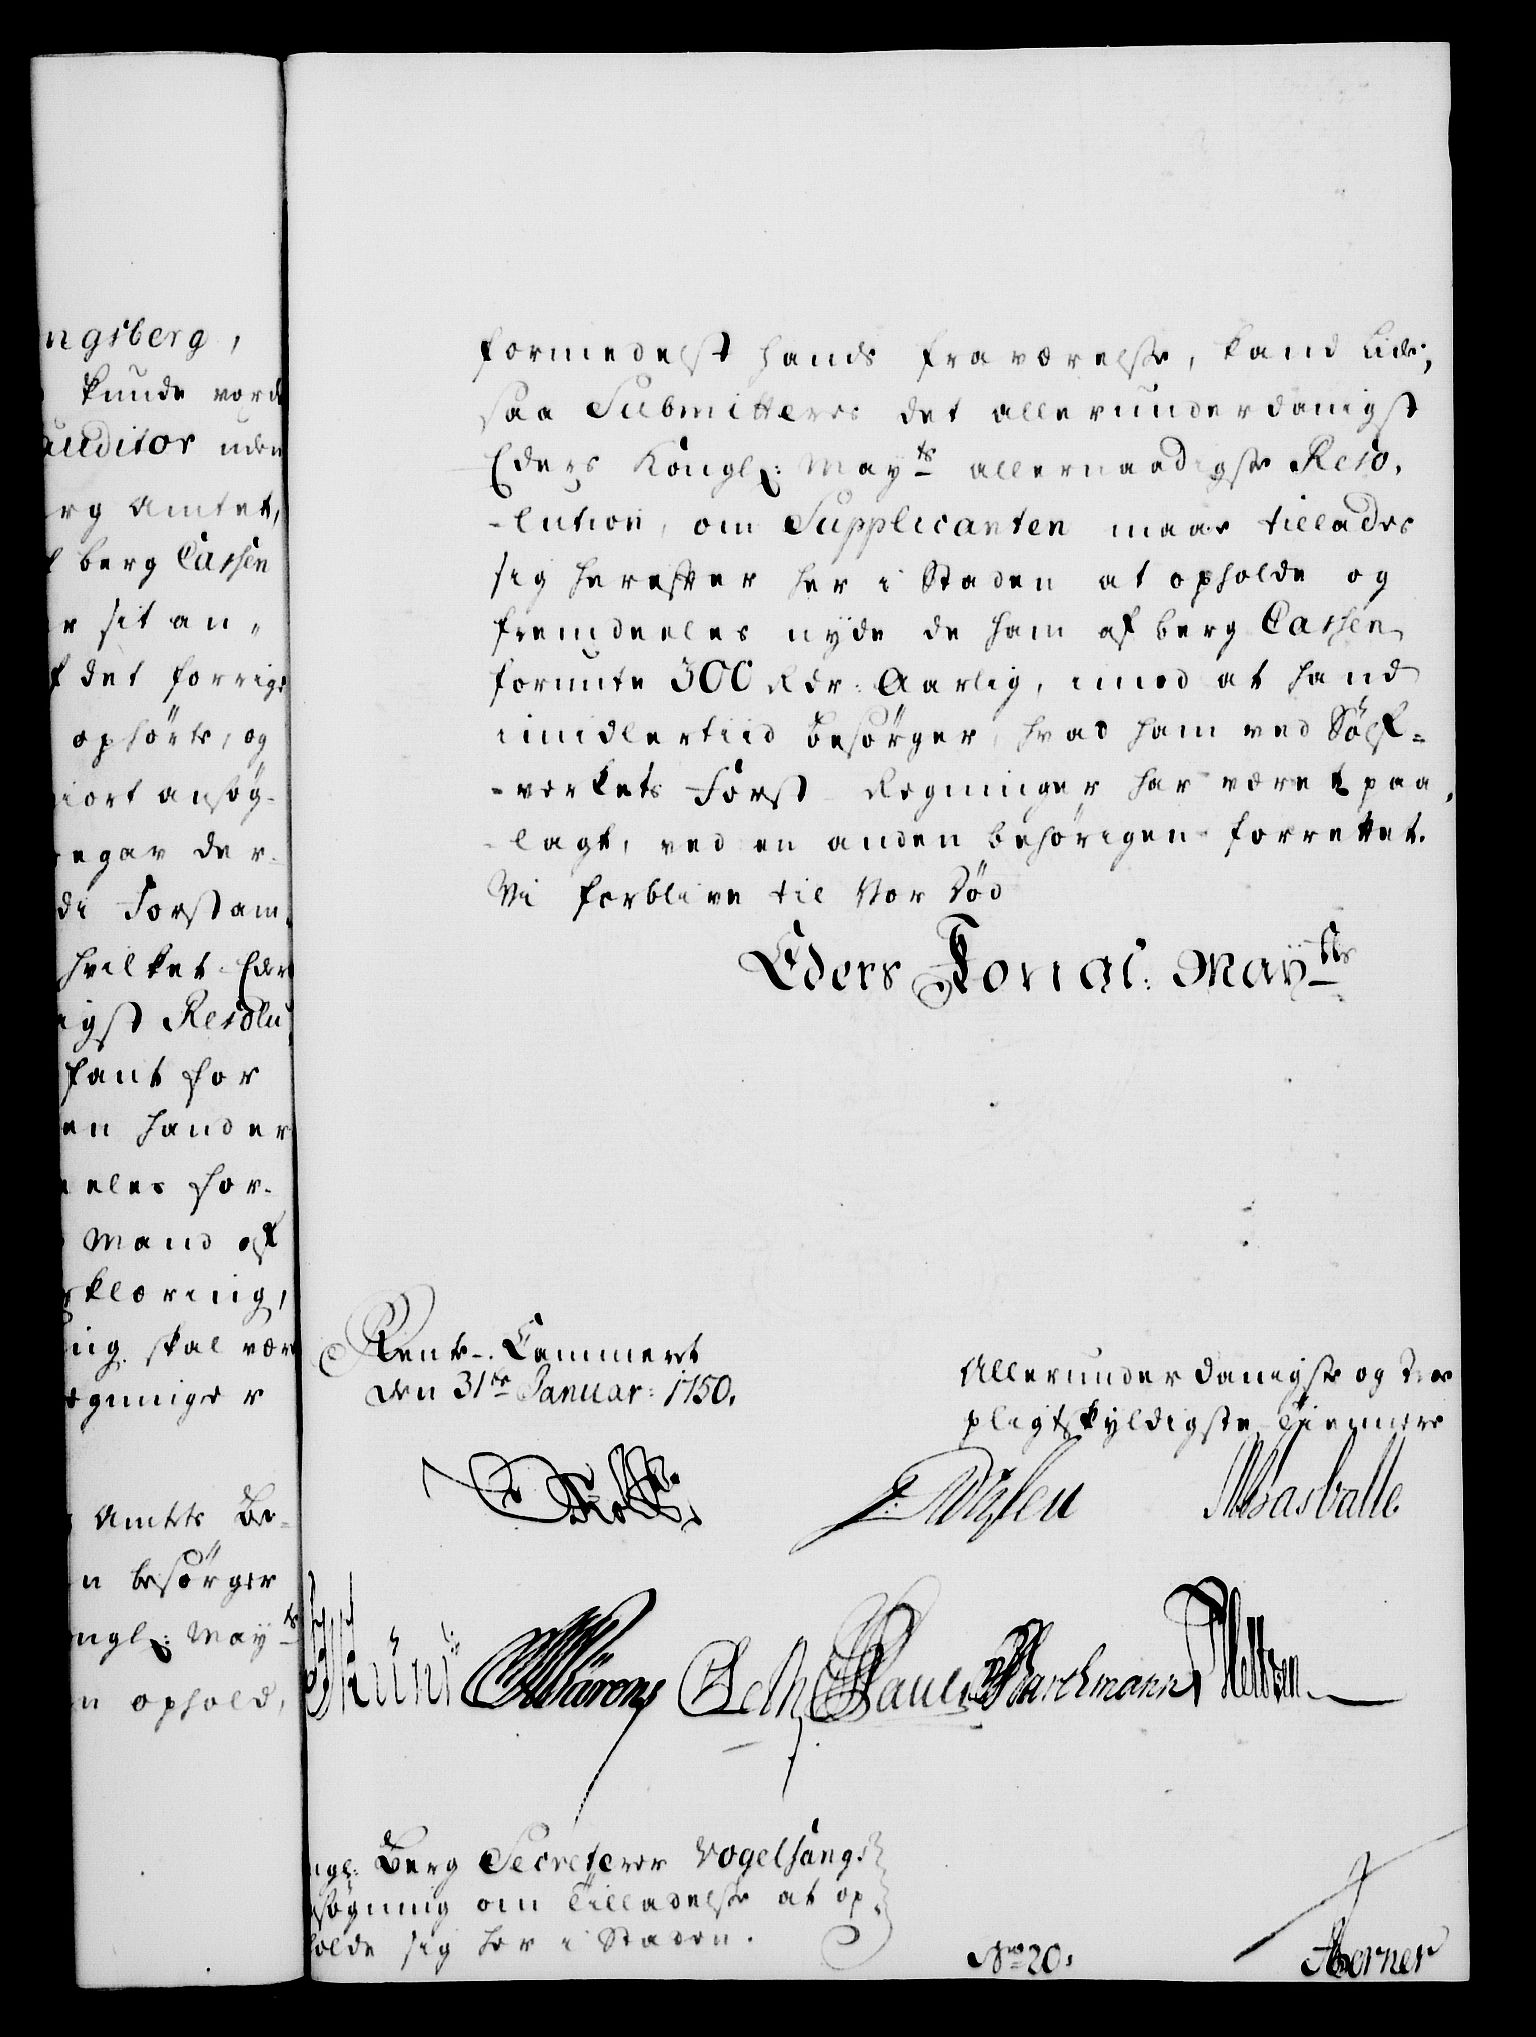 ngsberg,
kunde vord
auditor uden
rg Amtet,
berg Cassen
r sit an-
f det forrige
ophörte, og
giort ansög-
egar der-
di Forstam
hvilket Eder
igst Resolu
fant for
en hander
eeles for-
Mand af
klæring,
ing skal vær
egninger
Amtets Be-
n besörger
ngl: Mayts
n ophold,
formedelst hands fraværelse, kand lide,
saa Submitteres det allerunderdanigst
Eders Kongl: Mayts allernaadigste Reso-
-lution, om Supplicanten maae tillades
sig herefter her i Staden at opholde og
fremdeeles nyde de ham af berg Cassen
forunte 300 Rdr: Aarlig, imod at hand
imidlertiid besörger, hvad ham ved Sölf-
-verkets Forst Regninger har været paa-
-lagt, ved en anden behörigen forrettet.
Vi forblive til Vor Död
Eders Kongl: Mayts
Rente-Cammeret
den 31te Januar: 1750.
Allerunderdanigste og Troe
pligtskyldigste Tiennere
Barchmann
ngl: Berg Secreterer Vogelsangs
nsögning om Tilladelse at op-
holde sig her i Staden.
No 20.